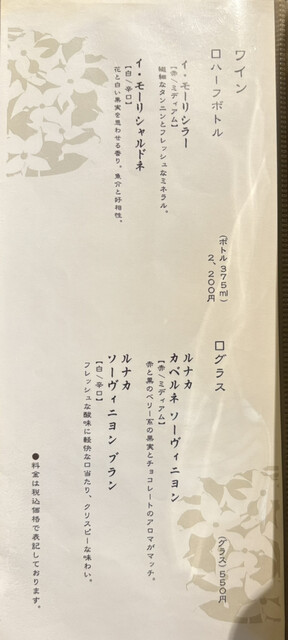 ワイン
□ハーフボトル
(ボトル 375ml)
2、200円
イ・モーリ シラー
【赤/ミディアム】
繊細なタンニンとフレッシュなミネラル。
イ・モーリ シャルドネ
【白/辛口】
花と白い果実を思わせる香り。魚介と好相性。
□グラス
(グラス) 550円
ルナカ
カベルネ ソーヴィニヨン
【赤/ミディアム】
赤と黒のベリー系の果実とチョコレートのアロマがマッチ。
ルナカ
ソーヴィニヨン ブラン
【白/辛口】
フレッシュな酸味に軽快な口当たり、クリスピーな味わい。
●料金は税込価格で表記しております。